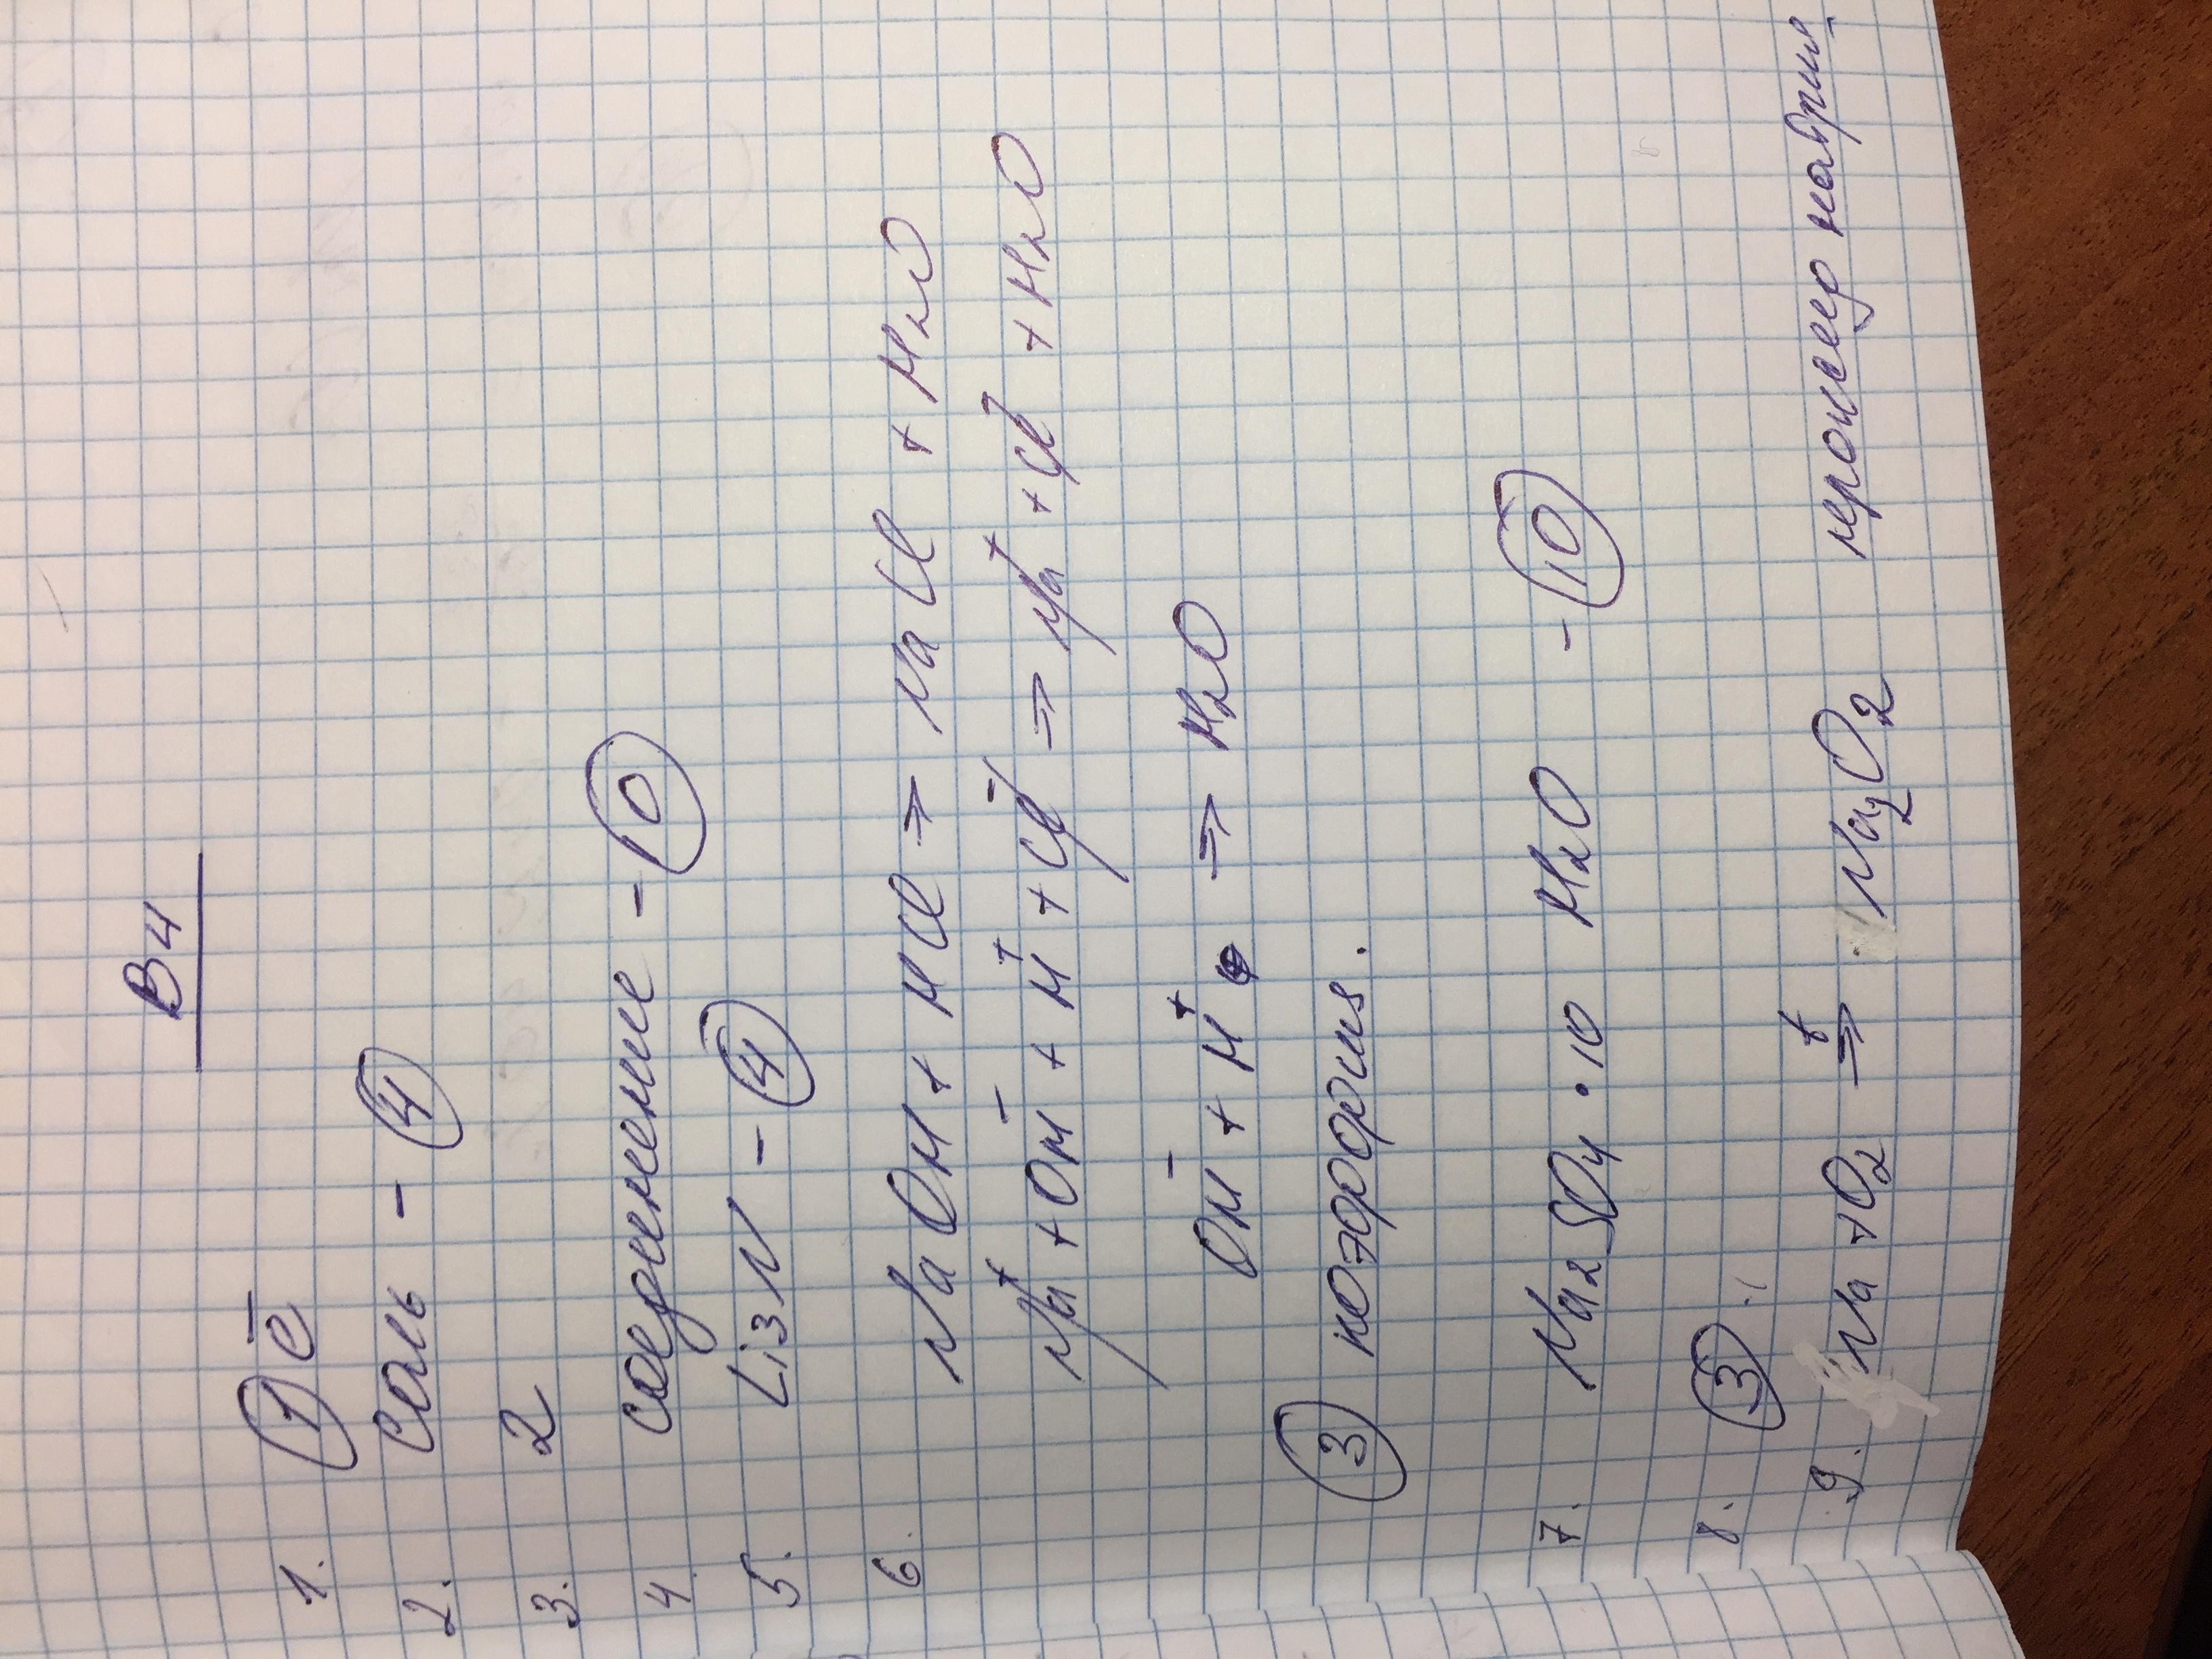 В4
1. 1 ē
2. Соль - 4
3. 2
4. соединение - 0
5. Li3N - 4
6. NaOH + HCl => NaCl + H2O
Na⁺ + OH⁻ + H⁺ + Cl⁻ => Na⁺ + Cl⁻ + H2O
OH⁻ + H⁺ => H2O
3 коэффициэнт.
7. Na2SO4 • 10 H2O - 10
8. 3
9. Na + O2 =t> Na2O2 пероксид натрия